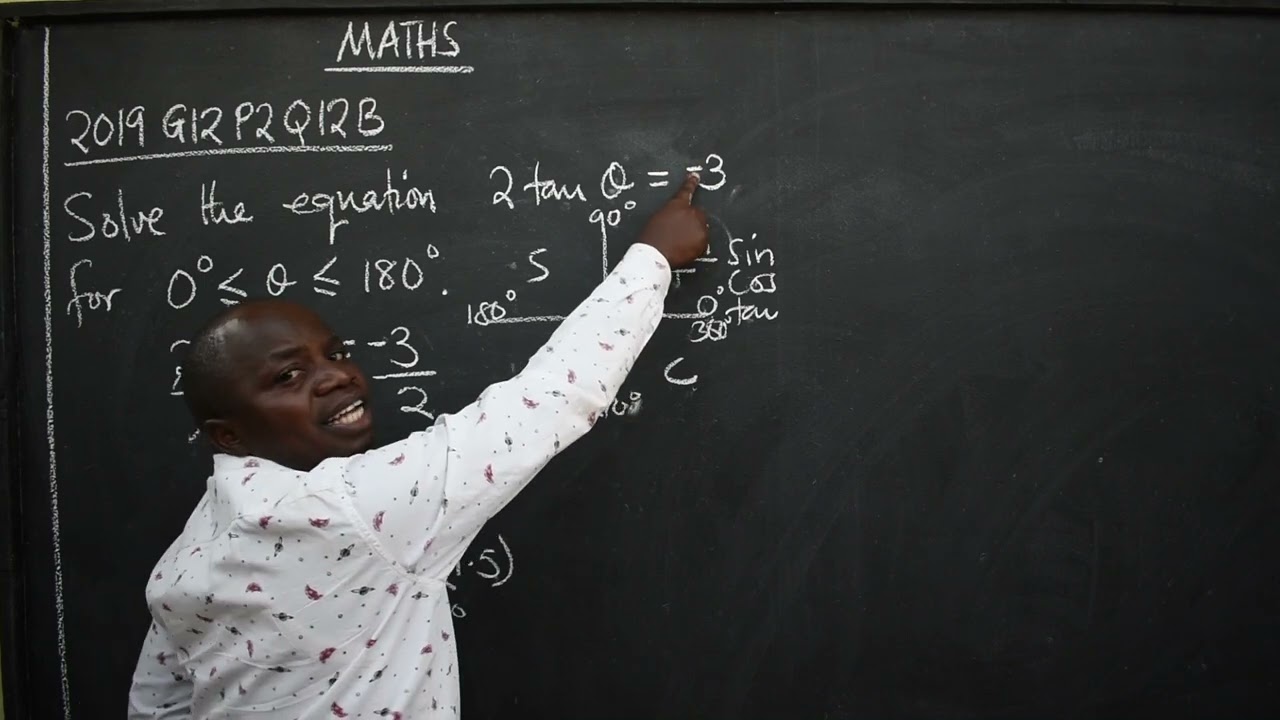 MATHS
2019 G12 P2 Q12B
Solve the equation 2 tan θ = -3
for 0° ≤ θ ≤ 180°.
90°
S
sin
cos
tan
180°
0°
360°
C
-3
2
.5)